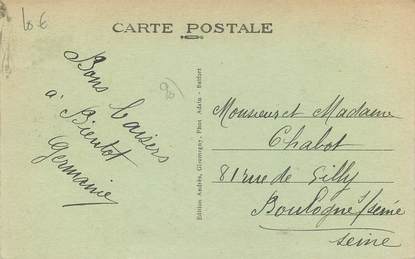 10 €
CARTE POSTALE
Bons baisers
à Bientot
Germaine
Edition Andrée, Giromagny, Phot Adata - Belfort
Monsieur et Madame
Chabot
81 rue de Silly
Boulogne s/ seine
Seine